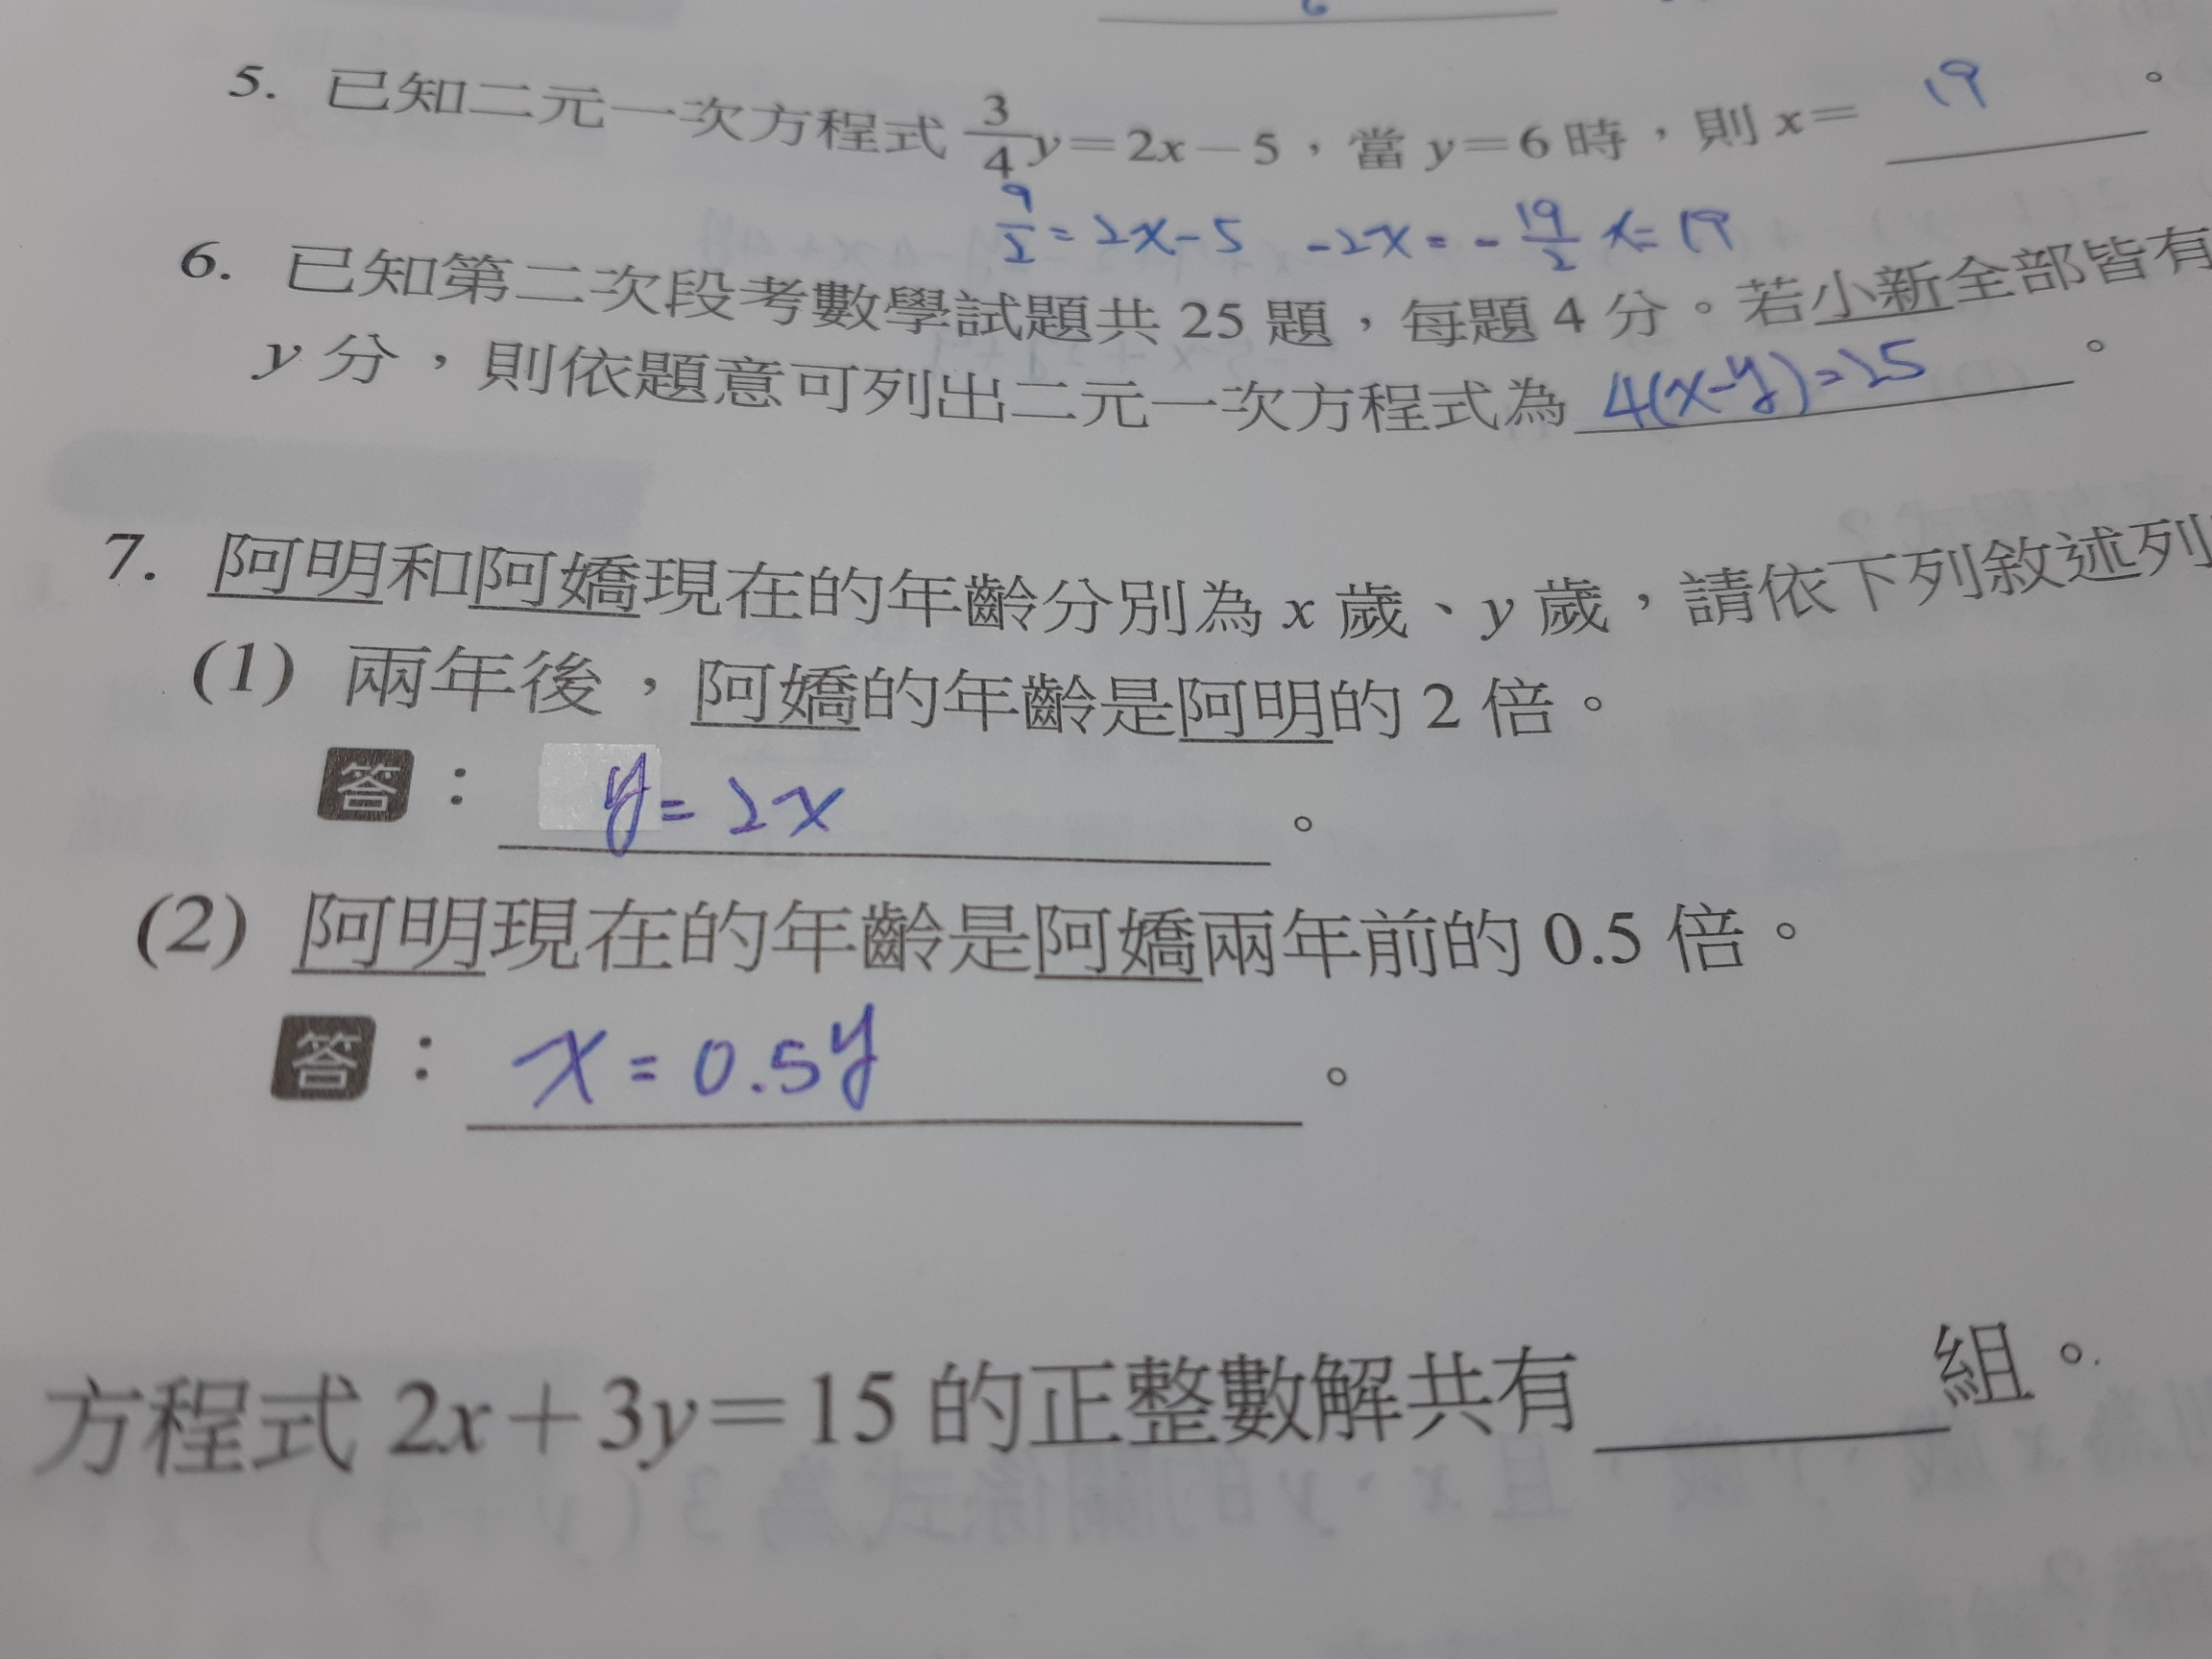 5. 已知二元一次方程式 3/4 y=2x-5,當 y=6 時,則 x= 19 。
9/2 = 2x-5 -2x = -19/2 x= 19
6. 已知第二次段考數學試題共 25 題,每題 4 分。若小新全部皆有
y 分,則依題意可列出二元一次方程式為 4(x-y)=25 。
7. 阿明和阿嬌現在的年齡分別為 x 歲、y 歲,請依下列敘述列
(1) 兩年後,阿嬌的年齡是阿明的 2 倍。
答: y=2x 。
(2) 阿明現在的年齡是阿嬌兩年前的 0.5 倍。
答: x=0.5y 。
方程式 2x+3y=15 的正整數解共有 組。